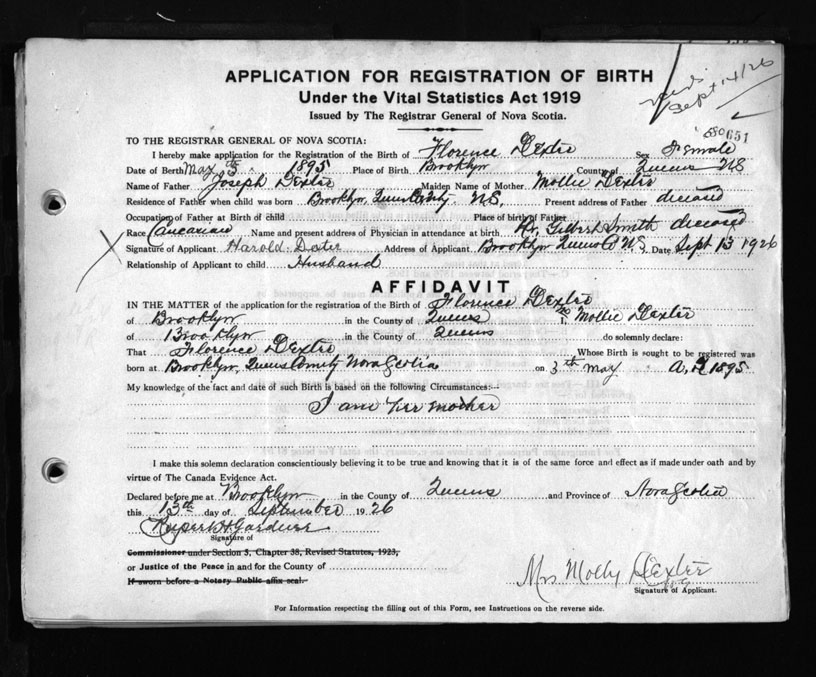 APPLICATION FOR REGISTRATION OF BIRTH
Under the Vital Statistics Act 1919
Issued by The Registrar General of Nova Scotia.
Sept 14/26
651
TO THE REGISTRAR GENERAL OF NOVA SCOTIA:
I hereby make application for the Registration of the Birth of Florence Dexter Sex Female
Date of Berth May 3th 1895 Place of Birth Brooklyn County of Queens NS
Name of Father Joseph Dexter Maiden Name of Mother Mollie Dexter
Residence of Father when child was born Brooklyn, Queens County N.S. Present address of Father deceased
Occupation of Father at Birth of child Place of birth of Father
Race Caucasian Name and present address of Physician in attendance at birth Dr. Gilbert Smith deceased
Signature of Applicant Harold Dexter Address of Applicant Brooklyn Queens N.S. Date Sept 13 1926
Relationship of Applicant to child Husband
AFFIDAVIT
IN THE MATTER of the application for the registration of the Birth of Florence Dexter
of Brooklyn in the County of Queens I, Mollie Dexter
of Brooklyn in the County of Queens do solemnly declare:
That Florence Dexter Whose Birth is sought to be registered was
born at Brooklyn, Queens County Nova Scotia on 3th May A.D. 1895
My knowledge of the fact and date of such Birth is based on the following Circumstances:—
I am her mother
I make this solemn declaration conscientiously believing it to be true and knowing that it is of the same force and effect as if made under oath and by
virtue of The Canada Evidence Act.
Declared before me at Brooklyn in the County of Queens and Province of Nova Scotia
this 13th day of September 1926
Rupert H Gardner
Signature of
Commissioner under Section 5, Chapter 38, Revised Statutes, 1923,
or Justice of the Peace in and for the County of
If sworn before a Notary Public affix seal.
Mrs Molly Dexter
Signature of Applicant.
For Information respecting the filling out of this Form, see Instructions on the reverse side.